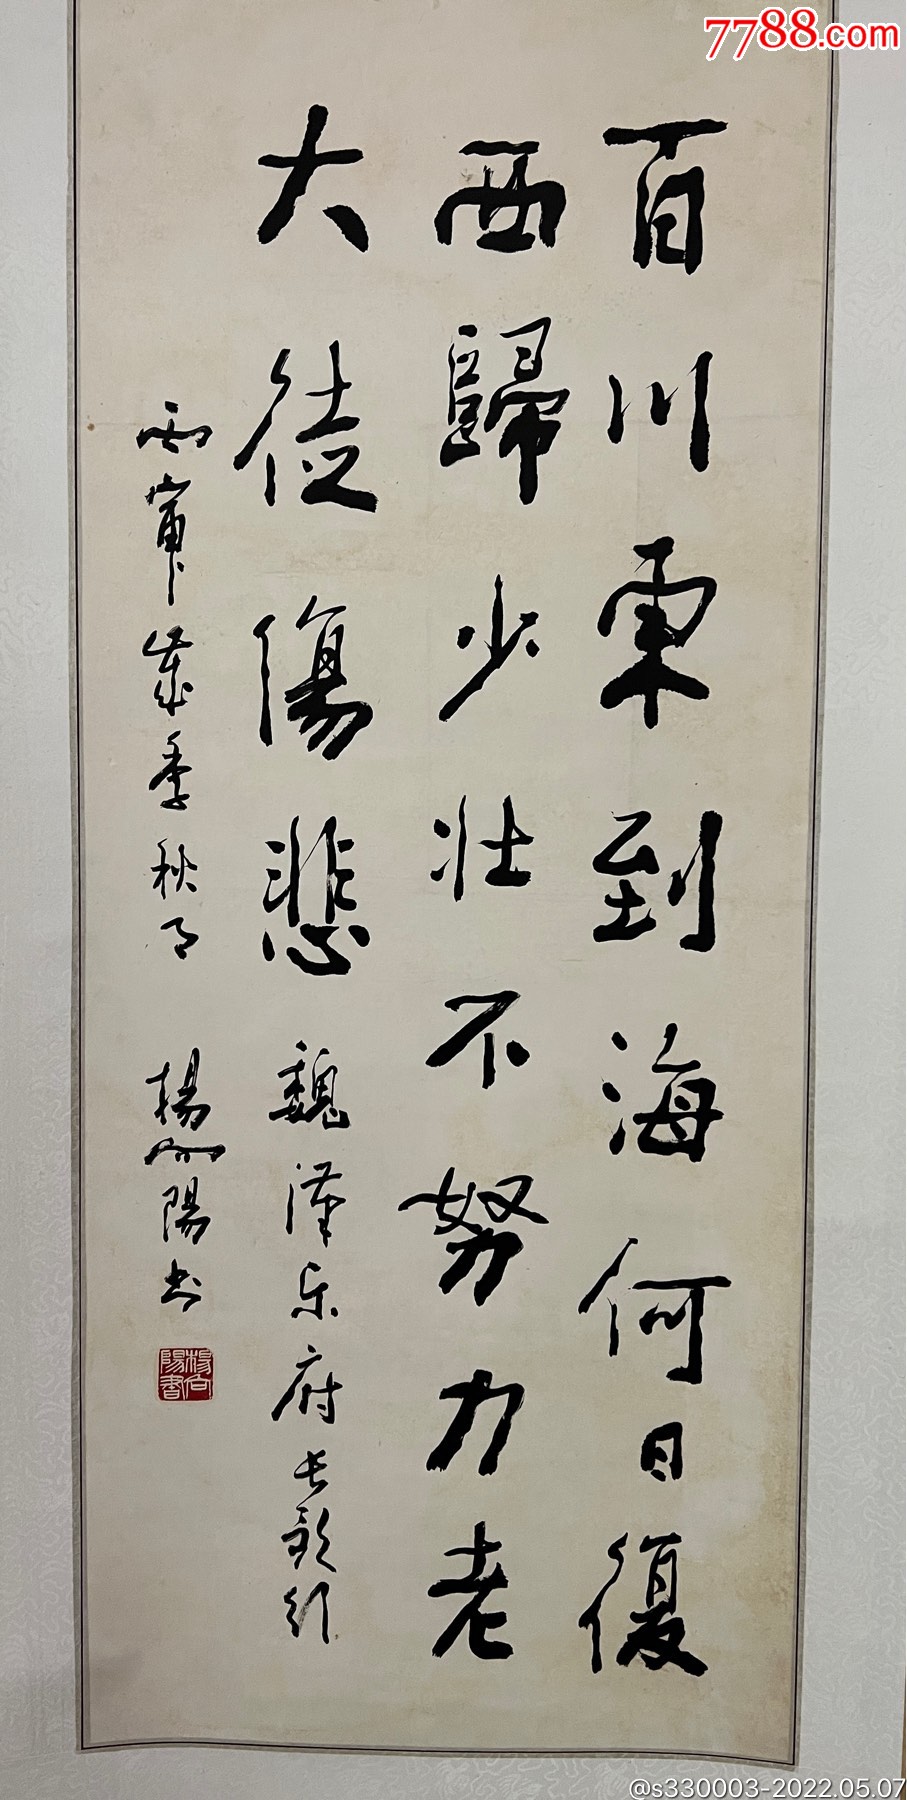 7788.com
百川東到海何日復
西歸少壯不努力老
大徒傷悲 魏漢乐府长歌行
丙寅歲季秋月 楊向陽书
楊向陽書
@s330003-2022.05.07